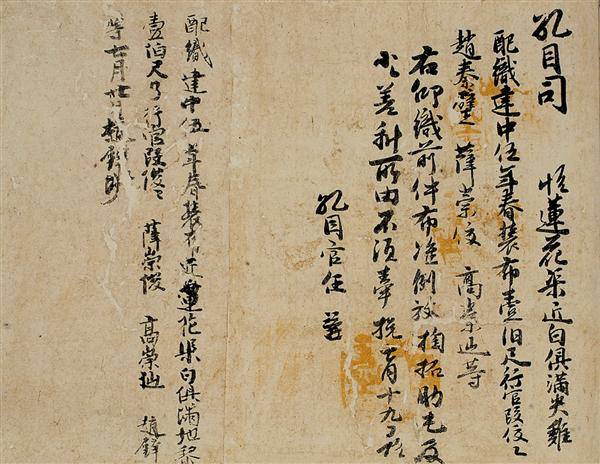 孔目司 帖蓮花渠匠白俱滿失雞
配織建中伍年春裝布壹伯尺行官段俊々
趙秦璧 薛崇俊 高崇迦等
右仰織前件布准例放掏拓助屯及
小小差科所由不須牽挽七月十九日帖
孔目官任 善
配織建中伍年春裝布匠蓮花渠白俱滿地黎
壹伯尺了行官段俊々 薛崇俊 高崇迦 趙
等七月廿日趙璧抄